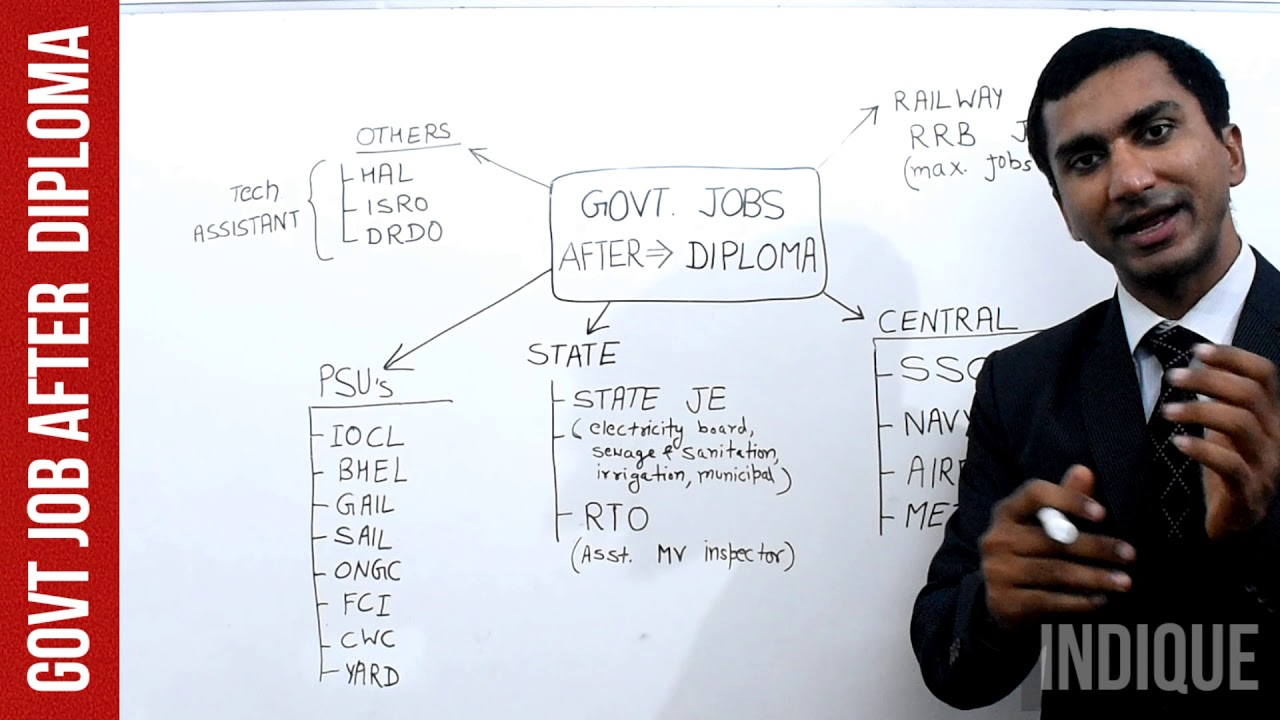 GOVT JOB AFTER DIPLOMA
GOVT. JOBS
AFTER⇒ DIPLOMA
OTHERS
Tech
ASSISTANT
HAL
ISRO
DRDO
RAILWAY
RRB J
(max. jobs
PSU's
IOCL
BHEL
GAIL
SAIL
ONGC
FCI
CWC
YARD
STATE
STATE JE
(electricity board,
sewage & sanitation,
irrigation, municipal)
RTO
(Asst. MV inspector)
CENTRAL
SSC
NAVY
AIR
ME
INDIQUE